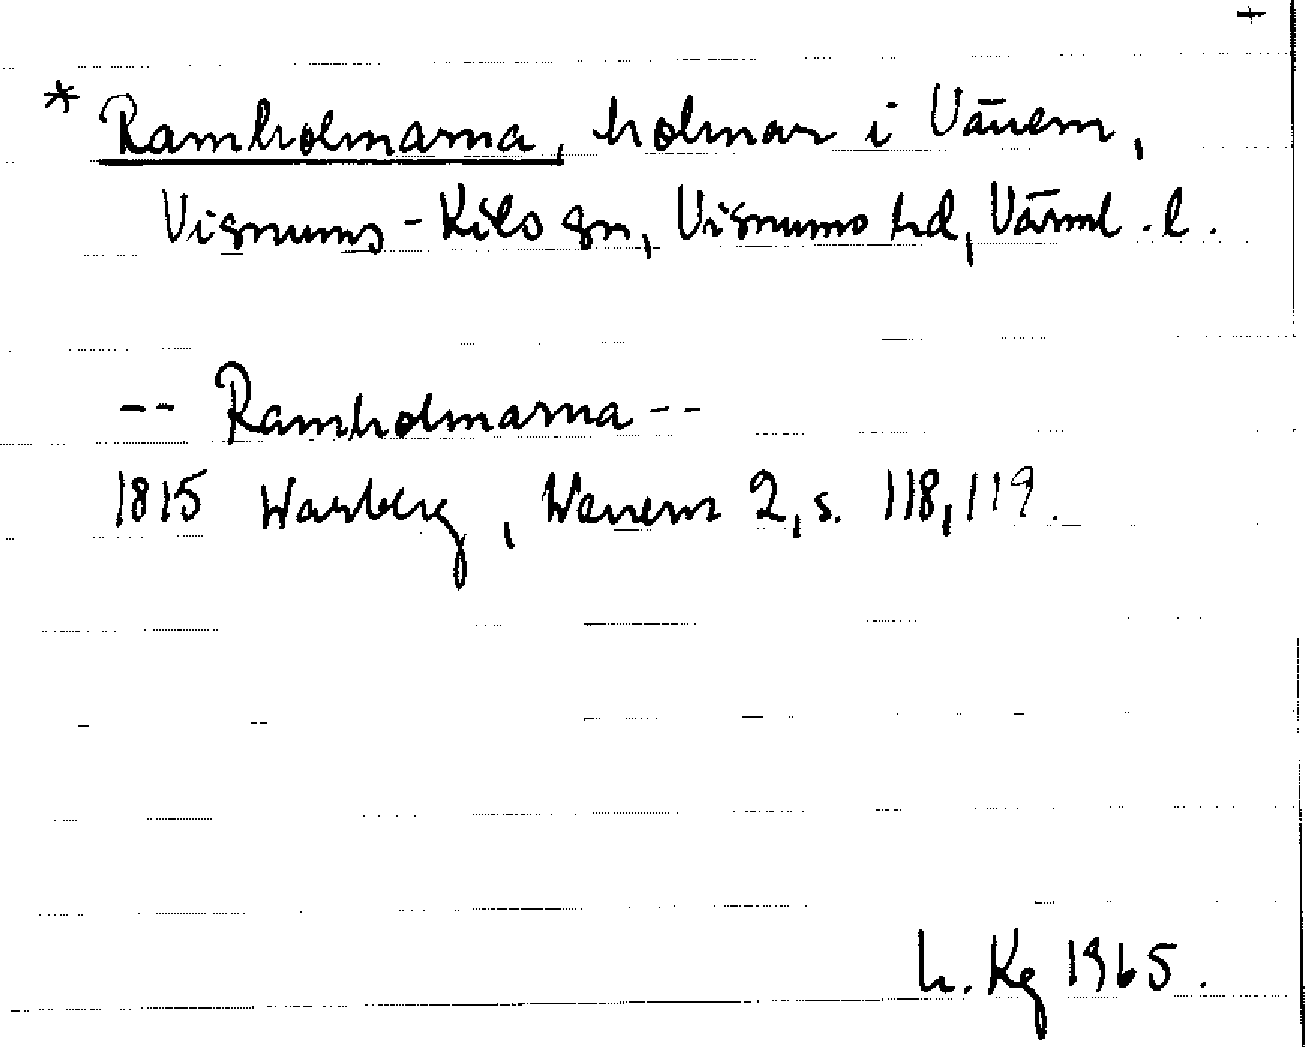 +
* Ramholmarna, holmar i Vänern,
Visnums-Kils sn, Visnums hd, Värml. l.
-- Ramholmarna --
1815 Warberg, Wenern 2, s. 118, 119.
h. Kg 1965.